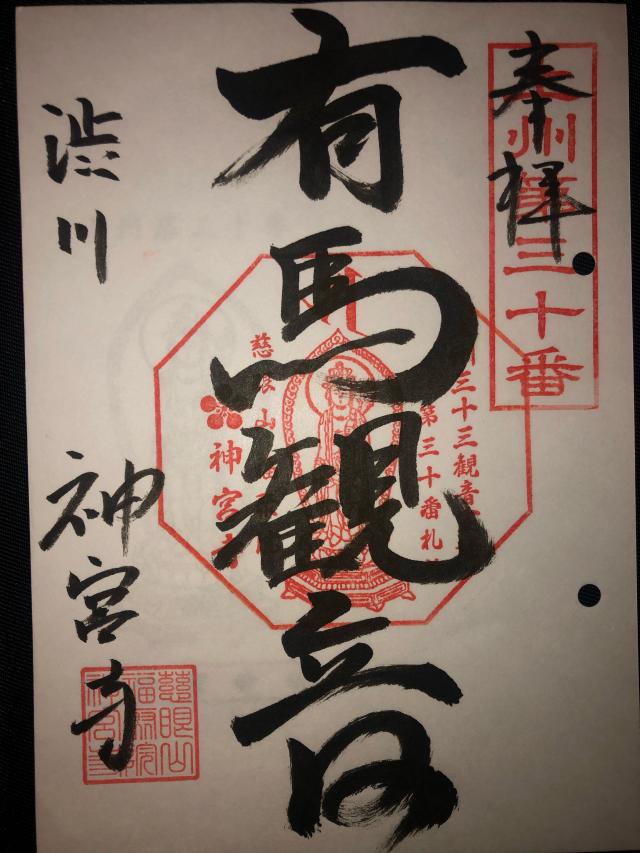 奉拝
州第三十番
有馬観音
三十三観音
第三十番札
慈眼山
神宮寺
渋川
神宮寺
慈眼山
福聚院
神宮寺